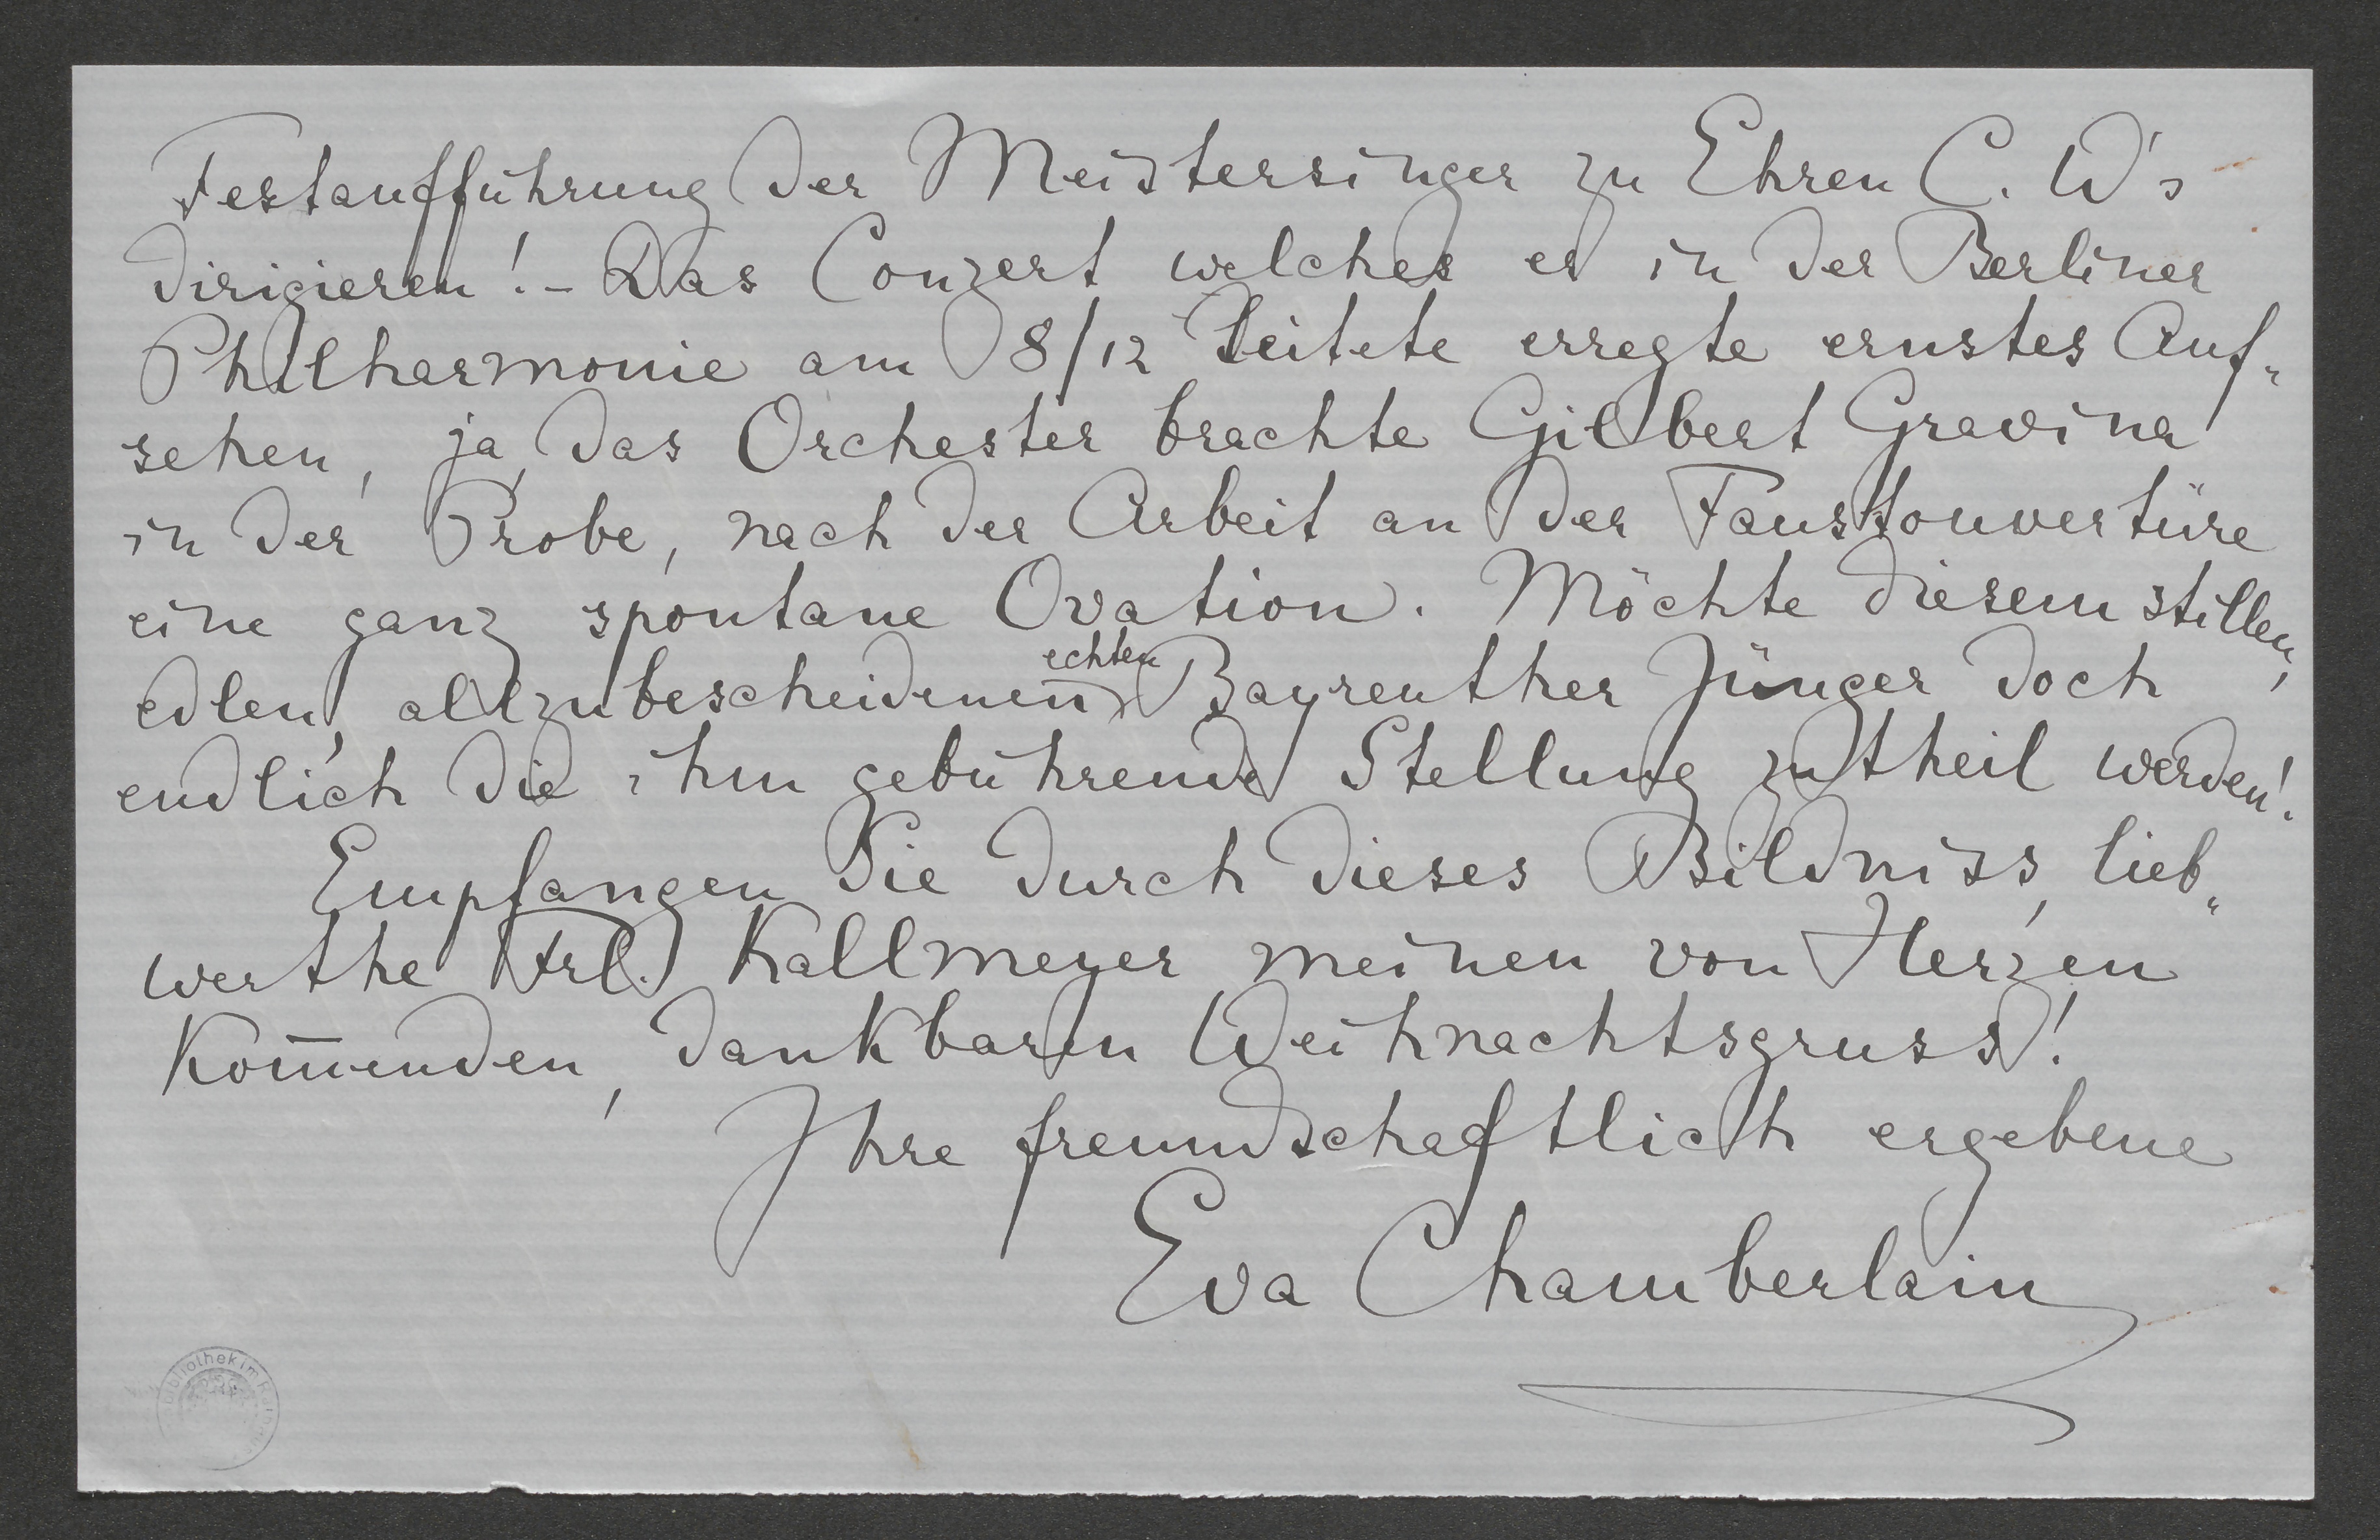 Festaufführung der Meistersinger zu Ehren C. W's
dirigieren! - Das Conzert welches er in der Berliner
Philharmonie am 8/12 leitete erregte ernstes Auf-
sehen, ja, das Orchester brachte Gilbert Gravina
in der Probe, nach der Arbeit an der Faustouvertüre
eine ganz spontane Ovation. Möchte diesem stillen,
edlen, allzubescheidenen echten Bayreuther Jünger doch
endlich die ihm gebührende Stellung zutheil werden!
Empfangen Sie durch dieses Bildniss, lieb-
werthe Frl. Kallmeyer meinen von Herzen
kom̄enden, dankbaren Weihnachtsgruss!
Ihre freundschaftlich ergebene
Eva Chamberlain